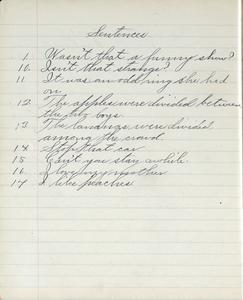 Sentences
1. Wasn't that a funny show?
10. Isn't that strange?
11. It was an odd ring she had
on.
12. The apples were divided between
the boys.
13. The bananas were divided
among the crowd.
14. Stop that car
15. Can't you stay awhile.
16. I love my mother
17. I like peaches